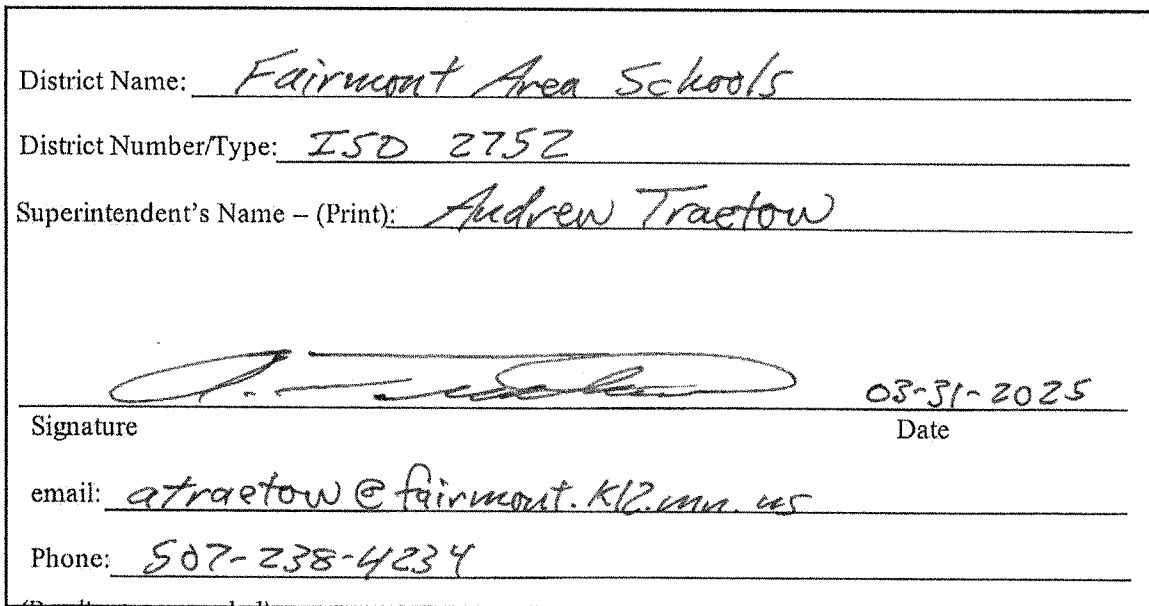 District Name: Fairmont Area Schools
District Number/Type: ISD 2752
Superintendent's Name – (Print): Andrew Traetow
03-31-2025
Signature Date
email: atraetow@fairmont.k12.mn.us
Phone: 507-238-4234